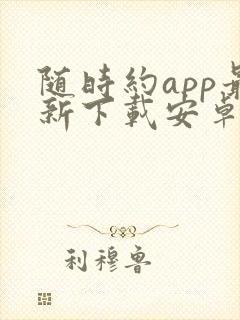 随時約app最
新下載安卓
利穆鲁